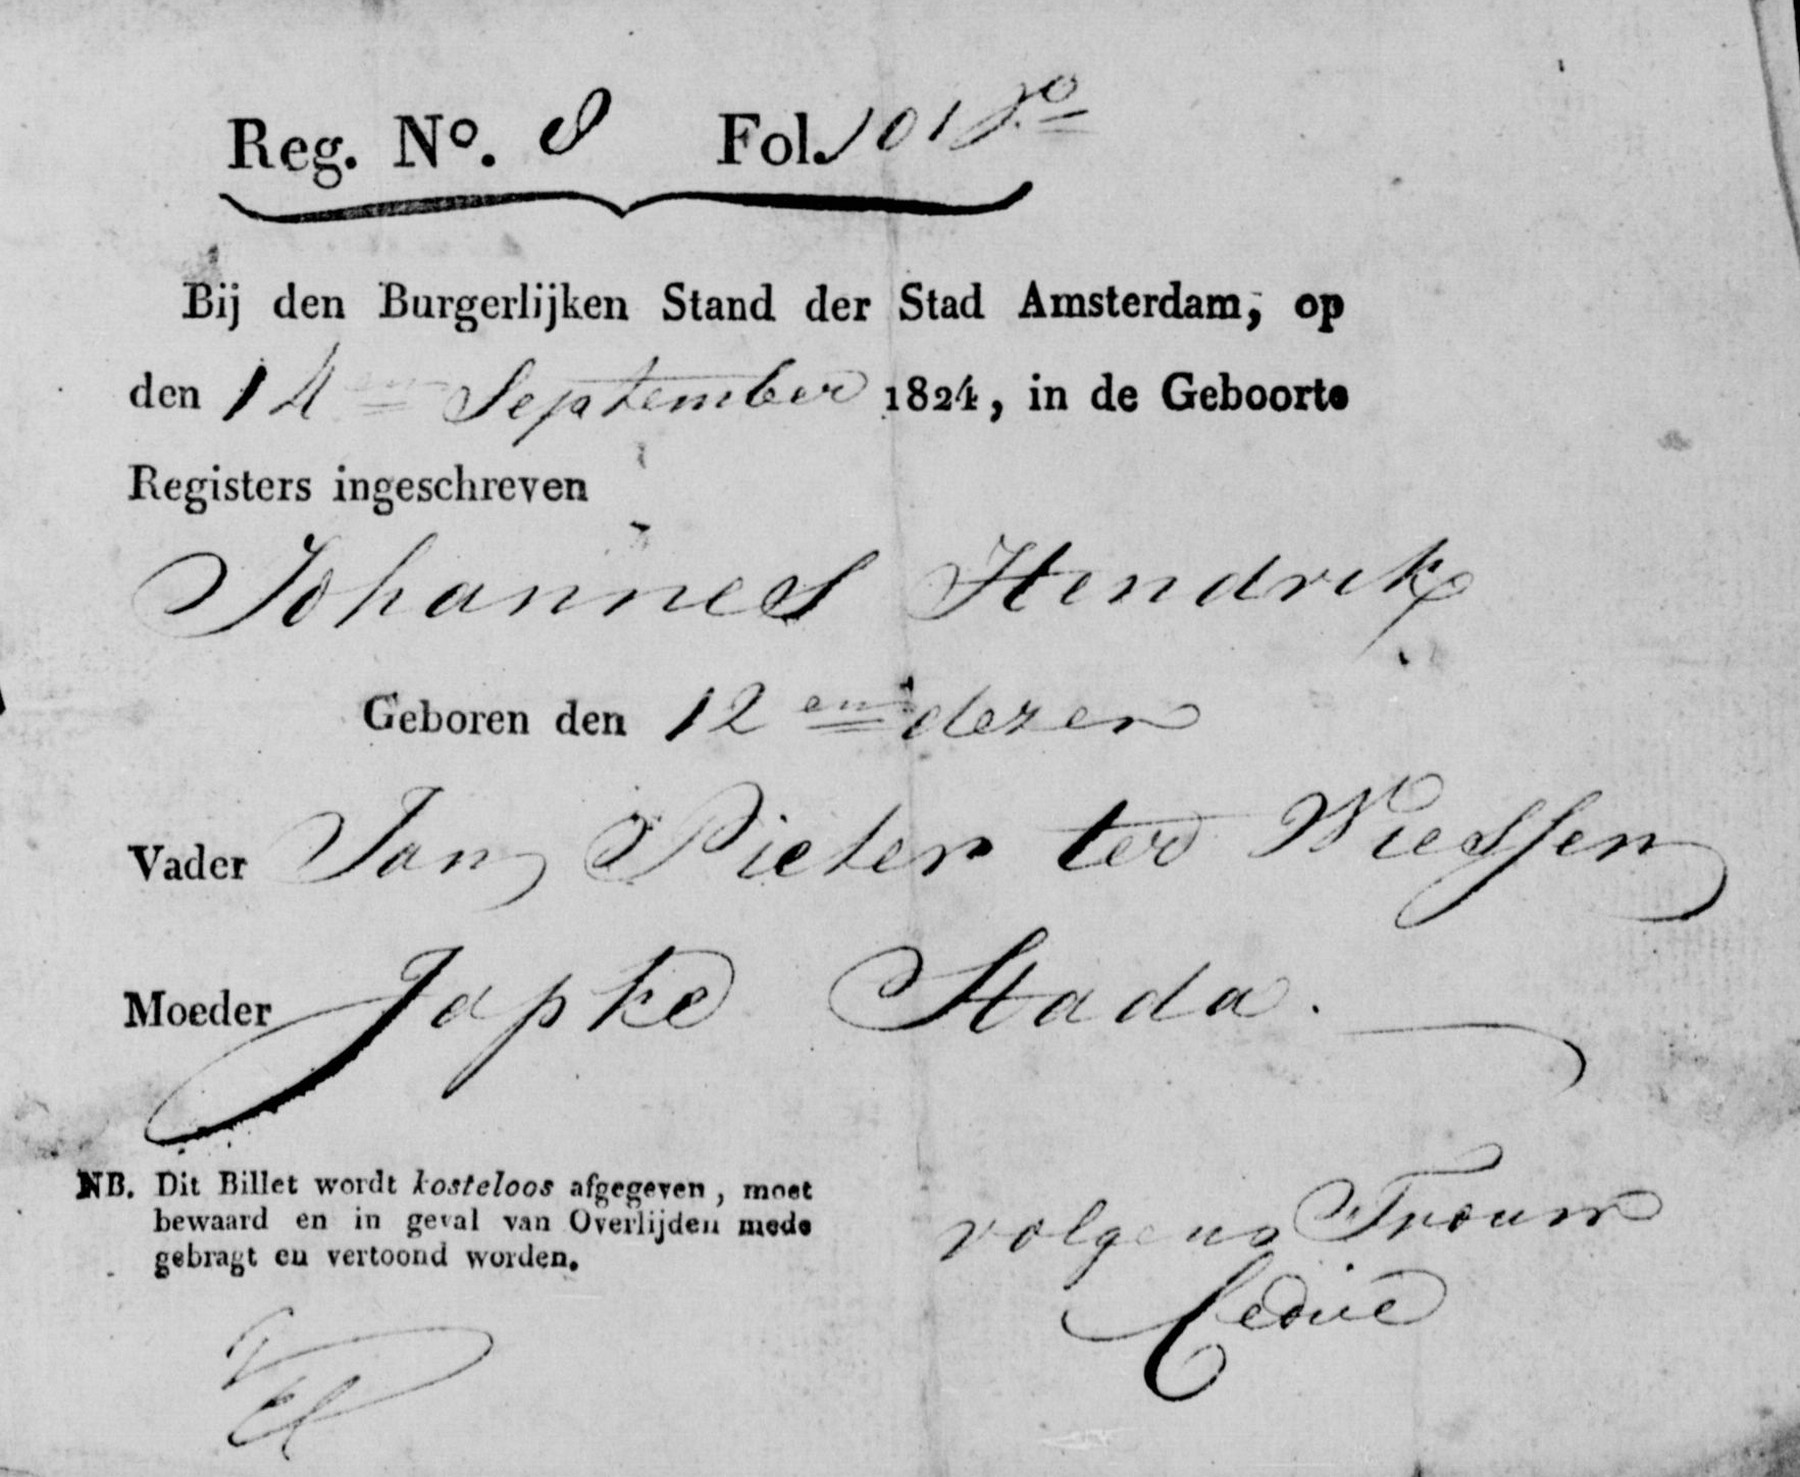 Reg. No. 8 Fol. 101 vo
Bij den Burgerlijken Stand der Stad Amsterdam, op
den 14en September 1824, in de Geboorte
Registers ingeschreven
Johannes Hendrik
Geboren den 12en dezer
Vader Jan Pieter ter Wiessen
Moeder Japke Stada.
NB. Dit Billet wordt kosteloos afgegeven, moet
bewaard en in geval van Overlijden mede
gebragt en vertoond worden.
volgens Trouw
Cedue